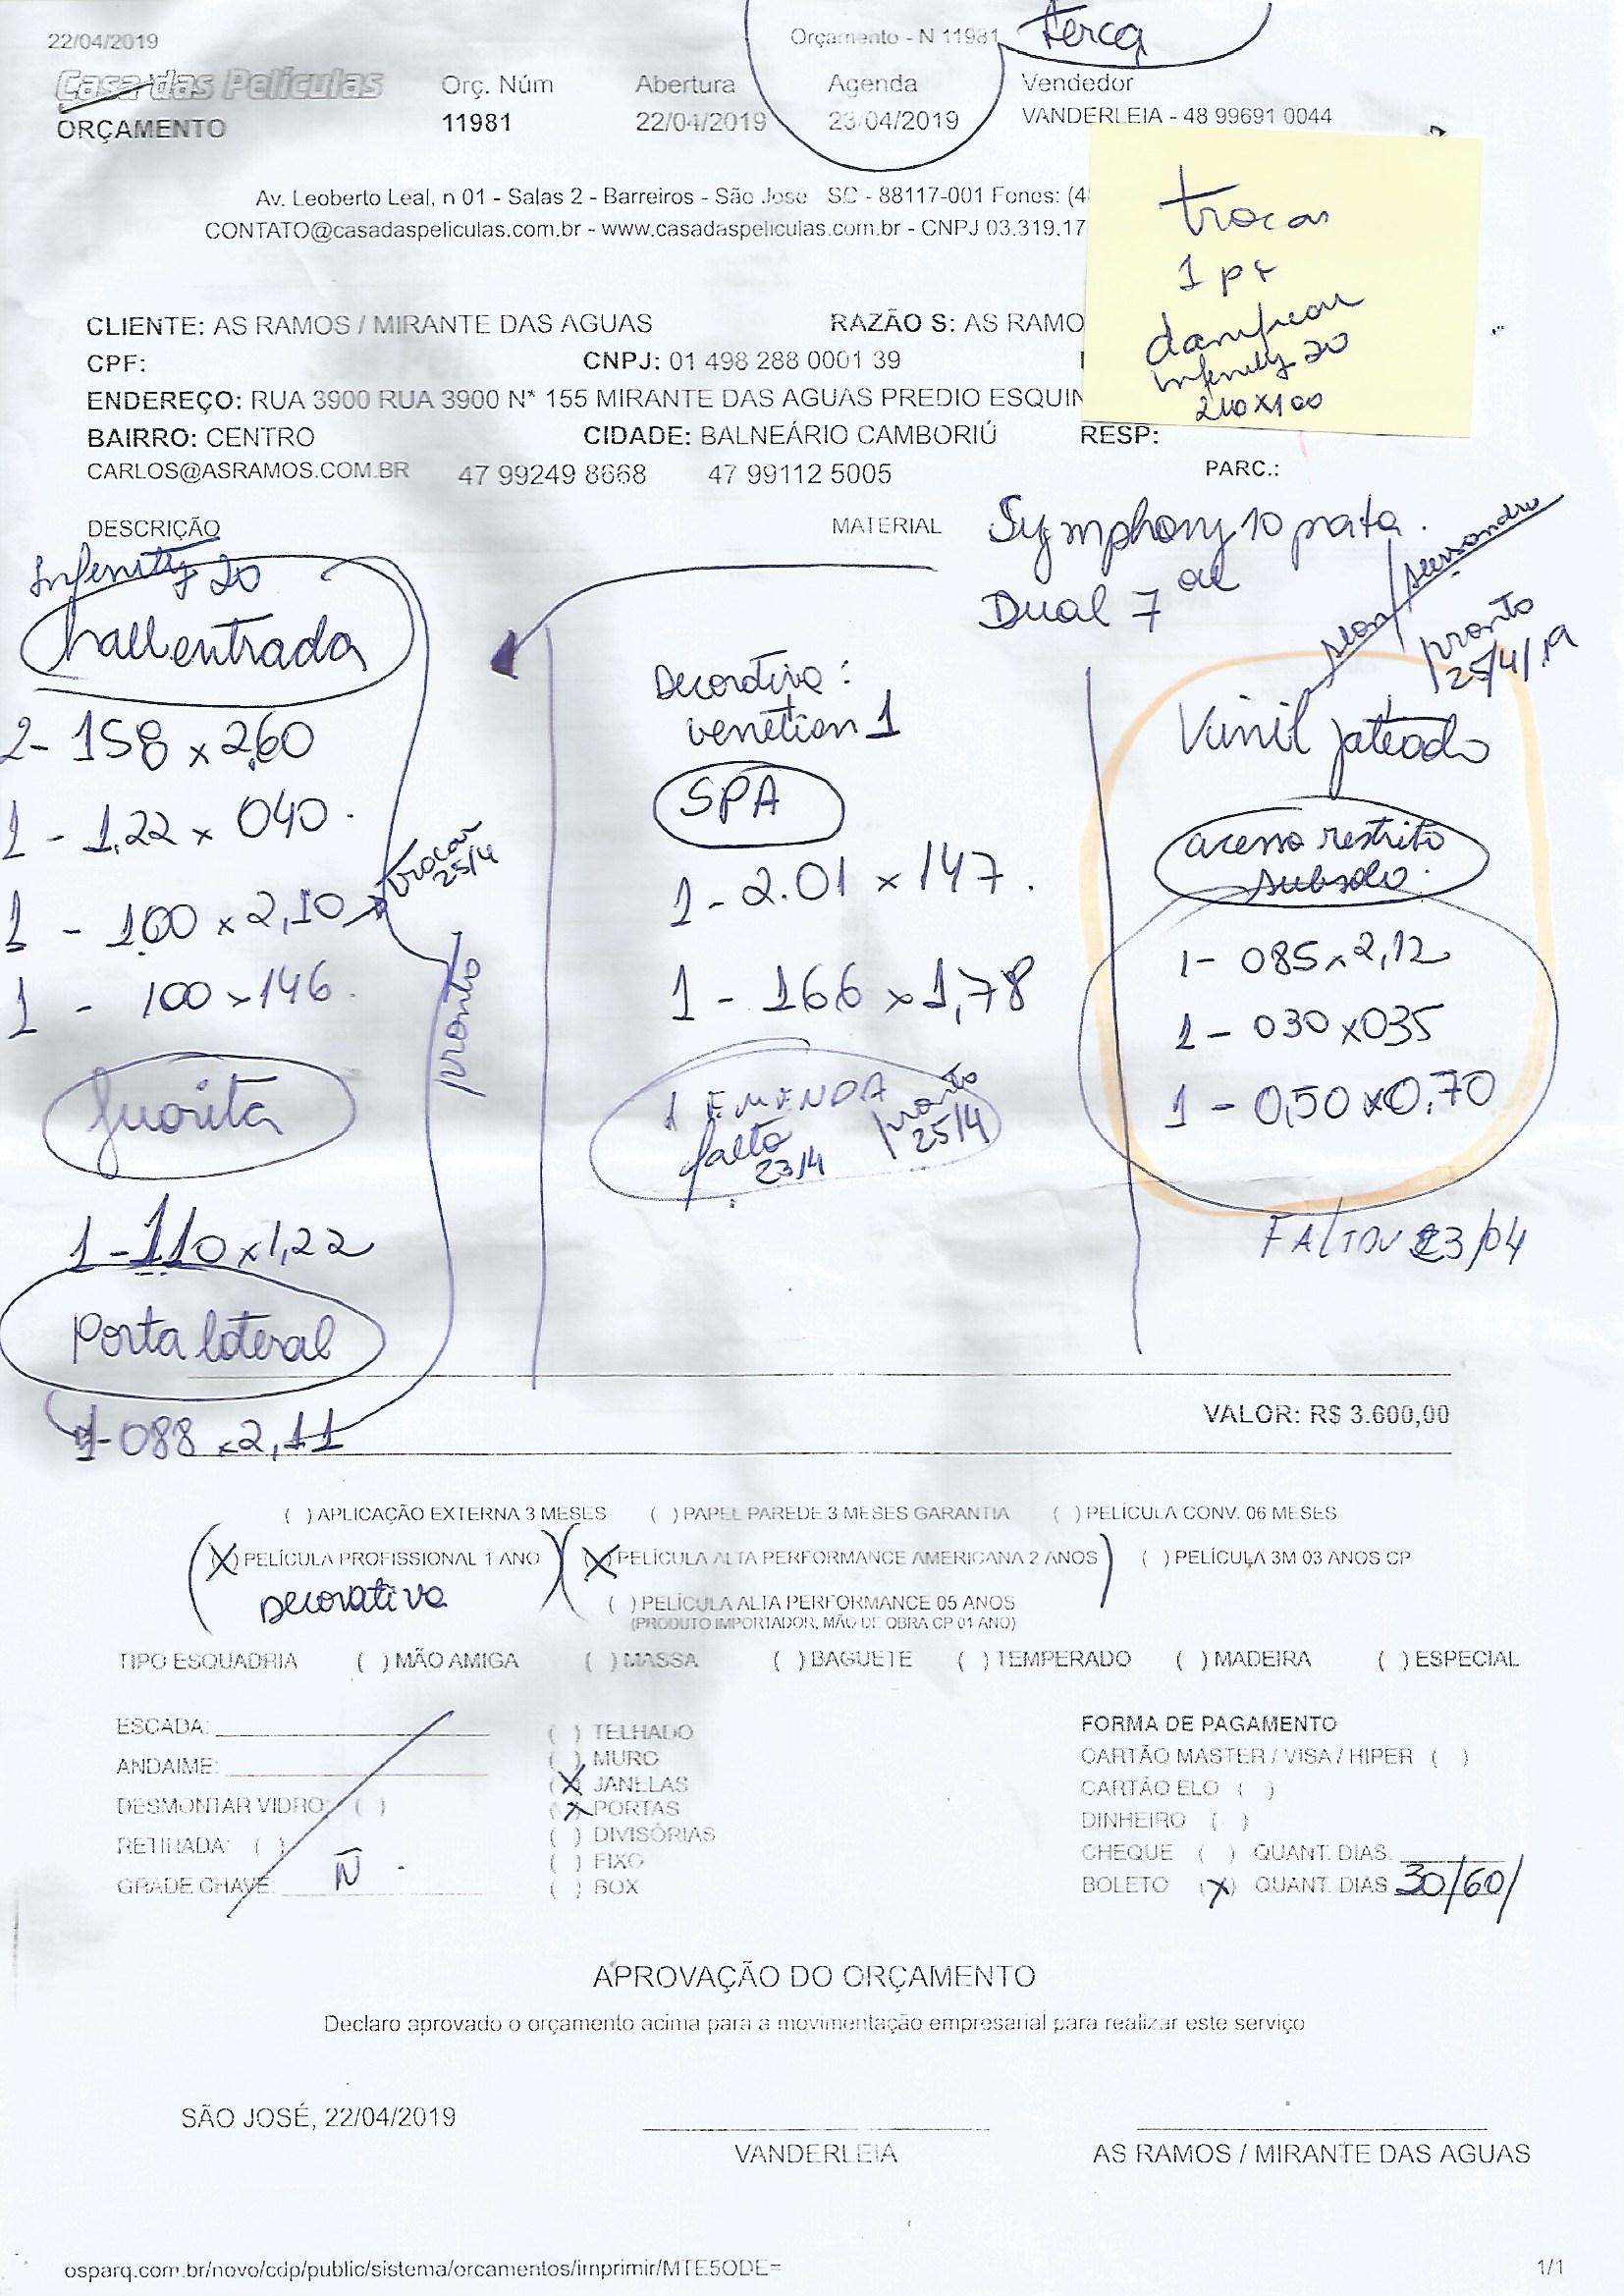 22/04/2019
Orçamento - N 11981
terça
Casa das Películas
Orç. Núm
Abertura
Agenda
Vendedor
ORÇAMENTO
11981
22/04/2019
23/04/2019
VANDERLEIA - 48 99691 0044
Av. Leoberto Leal, n 01 - Salas 2 - Barreiros - São José SC - 88117-001 Fones: (4
CONTATO@casadaspeliculas.com.br - www.casadaspeliculas.com.br - CNPJ 03.319.17
trocar
1 pt
danificou
infenity 20
210x100
CLIENTE: AS RAMOS / MIRANTE DAS AGUAS
RAZÃO S: AS RAMO
CPF:
CNPJ: 01 498 288 0001 39
ENDEREÇO: RUA 3900 RUA 3900 N* 155 MIRANTE DAS AGUAS PREDIO ESQUIN
BAIRRO: CENTRO
CIDADE: BALNEÁRIO CAMBORIÚ
RESP:
CARLOS@ASRAMOS.COM.BR 47 99249 8668 47 99112 5005
PARC.:
DESCRIÇÃO
MATERIAL
Symphony 10 prata.
ou
Dual 7
Infenity 20
hall entrada
2- 158 x 2,60
1 - 1,22 x 040.
1 - 100 x 2,10
trocar
25/4
1 - 100 x 146.
pronto
Guarita
1-110 x 1,22
Porta lateral
1-088 x 2,11
Decorativa:
venetian 1
SPA
1- 2.01 x 147.
1 - 166 x 1,78
1 EMENDA
falto
23/4
pronto
25/4
pronto
25/4/19
Vinil jateado
acesso restrito
subsolo.
1- 085 x 2,12
1- 030 x 035
1 - 0,50 x 0,70
FALTOU 23/04
VALOR: R$ 3.600,00
( ) APLICAÇÃO EXTERNA 3 MESES ( ) PAPEL PAREDE 3 MESES GARANTIA ( ) PELÍCULA CONV. 06 MESES
(X) PELÍCULA PROFISSIONAL 1 ANO (X) PELÍCULA ALTA PERFORMANCE AMERICANA 2 ANOS ( ) PELÍCULA 3M 03 ANOS CP
Decorativa
( ) PELÍCULA ALTA PERFORMANCE 05 ANOS
(PRODUTO IMPORTADOR, MÃO DE OBRA CP 01 ANO)
TIPO ESQUADRIA ( ) MÃO AMIGA ( ) MASSA ( ) BAGUETE ( ) TEMPERADO ( ) MADEIRA ( ) ESPECIAL
ESCADA:
ANDAIME:
DESMONTAR VIDRO: ( )
RETIRADA: ( )
GRADE CHAVE:
Ñ.
( ) TELHADO
( ) MURO
(X) JANELAS
(X) PORTAS
( ) DIVISÓRIAS
( ) FIXO
( ) BOX
FORMA DE PAGAMENTO
CARTÃO MASTER / VISA / HIPER ( )
CARTÃO ELO ( )
DINHEIRO ( )
CHEQUE ( ) QUANT. DIAS
BOLETO (X) QUANT. DIAS 30/60/
APROVAÇÃO DO ORÇAMENTO
Declaro aprovado o orçamento acima para a movimentação empresarial para realizar este serviço
SÃO JOSÉ, 22/04/2019
VANDERLEIA
AS RAMOS / MIRANTE DAS AGUAS
osparq.com.br/novo/cdp/public/sistema/orcamentos/imprimir/MTE5ODE=
1/1